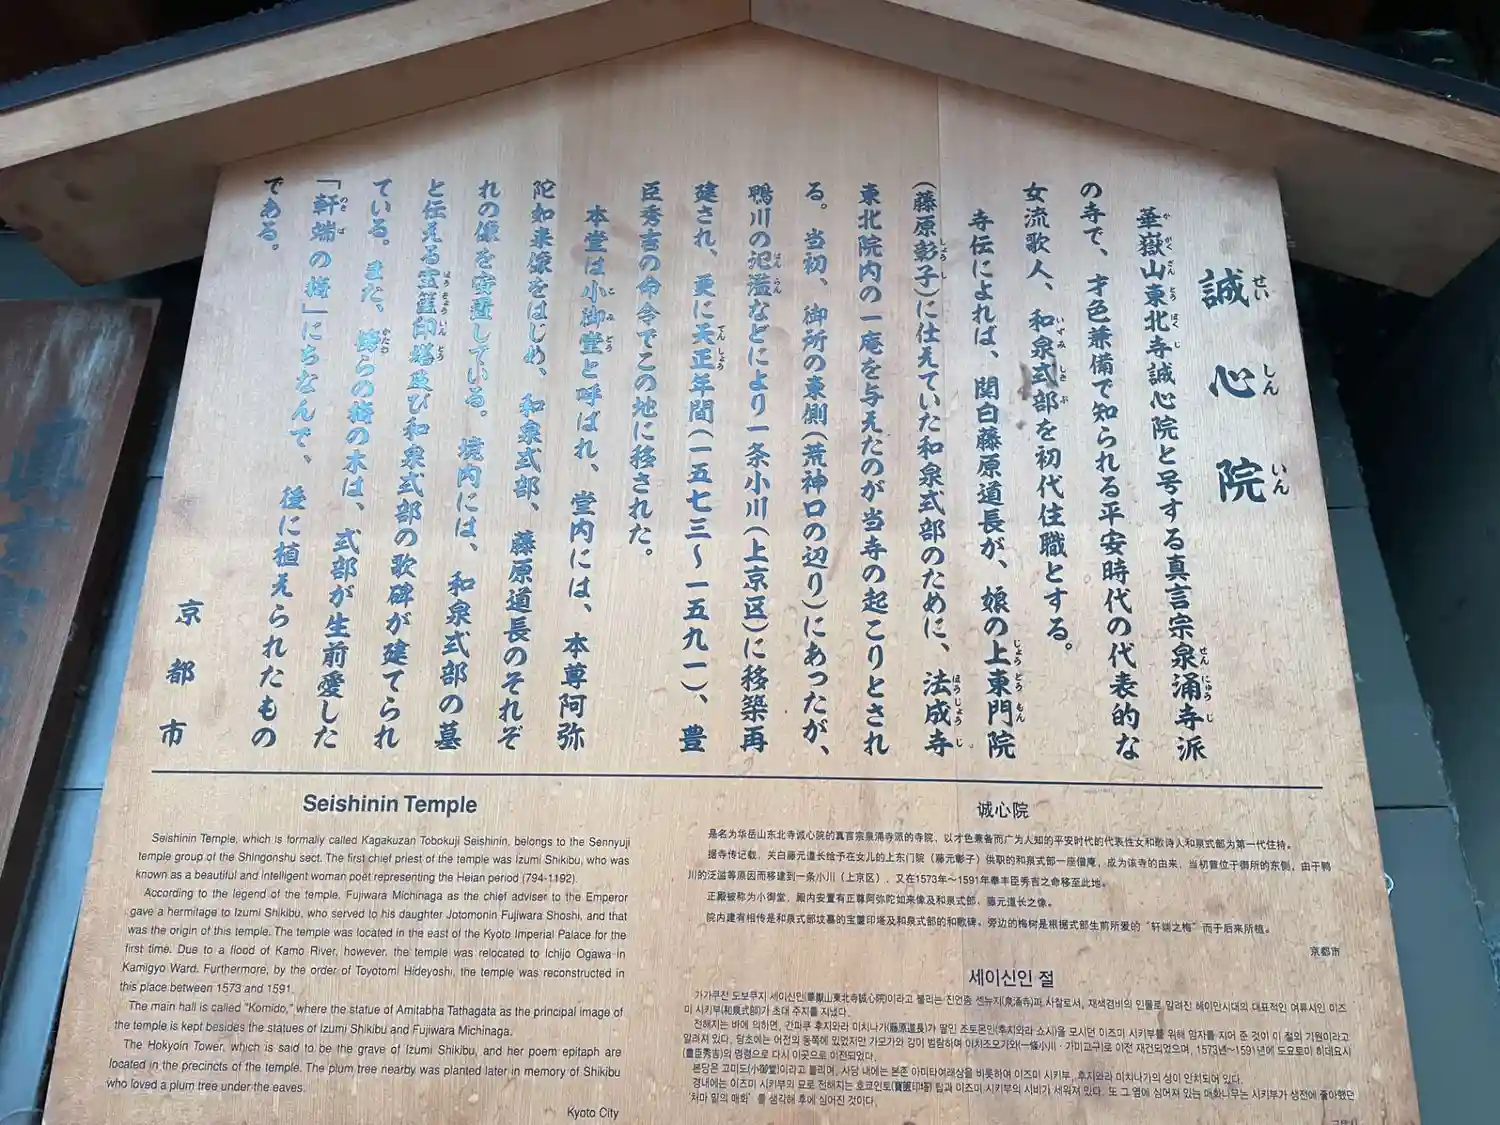 誠心院
せいしんいん
華嶽山東北寺誠心院と号する真言宗泉涌寺派
の寺で、才色兼備で知られる平安時代の代表的な
女流歌人、和泉式部を初代住職とする。
寺伝によれば、関白藤原道長が、娘の上東門院
(藤原彰子)に仕えていた和泉式部のために、法成寺
東北院内の一庵を与えたのが当寺の起こりとされ
る。当初、御所の東側(荒神口の辺り)にあったが、
鴨川の氾濫などにより一条小川(上京区)に移築再
建され、更に天正年間(一五七三〜一五九一)、豊
臣秀吉の命令でこの地に移された。
本堂は小御堂と呼ばれ、堂内には、本尊阿弥
陀如来像をはじめ、和泉式部、藤原道長のそれぞ
れの像を安置している。境内には、和泉式部の墓
と伝える宝篋印塔及び和泉式部の歌碑が建てられ
ている。また、傍らの梅の木は、式部が生前愛した
「軒端の梅」にちなんで、後に植えられたもの
である。
京都市
Seishinin Temple
Seishinin Temple, which is formally called Kagakuzan Tobokuji Seishinin, belongs to the Sennyuji
temple group of the Shingonshu sect. The first chief priest of the temple was Izumi Shikibu, who was
known as a beautiful and intelligent woman poet representing the Heian period (794-1192).
According to the legend of the temple, Fujiwara Michinaga as the chief adviser to the Emperor
gave a hermitage to Izumi Shikibu, who served to his daughter Jotomonin Fujiwara Shoshi, and that
was the origin of this temple. The temple was located in the east of the Kyoto Imperial Palace for the
first time. Due to a flood of Kamo River, however, the temple was relocated to Ichijo Ogawa in
Kamigyo Ward. Furthermore, by the order of Toyotomi Hideyoshi, the temple was reconstructed in
this place between 1573 and 1591.
The main hall is called "Komido," where the statue of Amitabha Tathagata as the principal image of
the temple is kept besides the statues of Izumi Shikibu and Fujiwara Michinaga.
The Hokyoin Tower, which is said to be the grave of Izumi Shikibu, and her poem epitaph are
located in the precincts of the temple. The plum tree nearby was planted later in memory of Shikibu
who loved a plum tree under the eaves.
Kyoto City
诚心院
是名为华岳山东北寺诚心院的真言宗泉涌寺派的寺院、以才色兼备而广为人知的平安时代的代表性女和歌诗人和泉式部为第一代住持。
据寺传记载，关白藤元道长给予在女儿的上东门院（藤元彰子）供职的和泉式部一座僧庵，成为该寺的由来，当初置位于御所的东侧，由于鸭
川的泛滥等原因而移建到一条小川（上京区），又在1573年～1591年奉丰臣秀吉之命移至此地。
正殿被称为小御堂，殿内安置有正尊阿弥陀如来像及和泉式部、藤元道长之像。
院内建有相传是和泉式部坟墓的宝箧印塔及和泉式部的和歌碑。旁边的梅树是根据式部生前所爱的"轩端之梅"而于后来所植。
京都市
세이신인 절
가가쿠잔 도보쿠지 세이신인(華嶽山東北寺誠心院)이라고 불리는 진언종 센뉴지(泉涌寺)파 사찰로서, 재색겸비의 인물로 알려진 헤이안시대의 대표적인 여류시인 이즈
미 시키부(和泉式部)가 초대 주지를 지냈다.
전해지는 바에 의하면, 간파쿠 후지와라 미치나가(藤原道長)가 딸인 조토몬인(후지와라 쇼시)을 모시던 이즈미 시키부를 위해 암자를 지어 준 것이 이 절의 기원이라고
알려져 있다. 당초에는 어전의 동쪽에 있었지만 가모가와 강이 범람하여 이치조오가와(一條小川・가미교구)로 이전 재건되었으며, 1573년~1591년에 도요토미 히데요시
(豊臣秀吉)의 명령으로 다시 이곳으로 이전되었다.
본당은 고미도(小御堂)이라고 불리며, 사당 내에는 본존 아미타여래상을 비롯하여 이즈미 시키부, 후지와라 미치나가의 상이 안치되어 있다.
경내에는 이즈미 시키부의 묘로 전해지는 호쿄인토(寶篋印塔) 탑과 이즈미 시키부의 시비가 세워져 있다. 또 그 옆에 심어져 있는 매화나무는 시키부가 생전에 좋아했던
'처마 밑의 매화'를 생각해 후에 심어진 것이다.